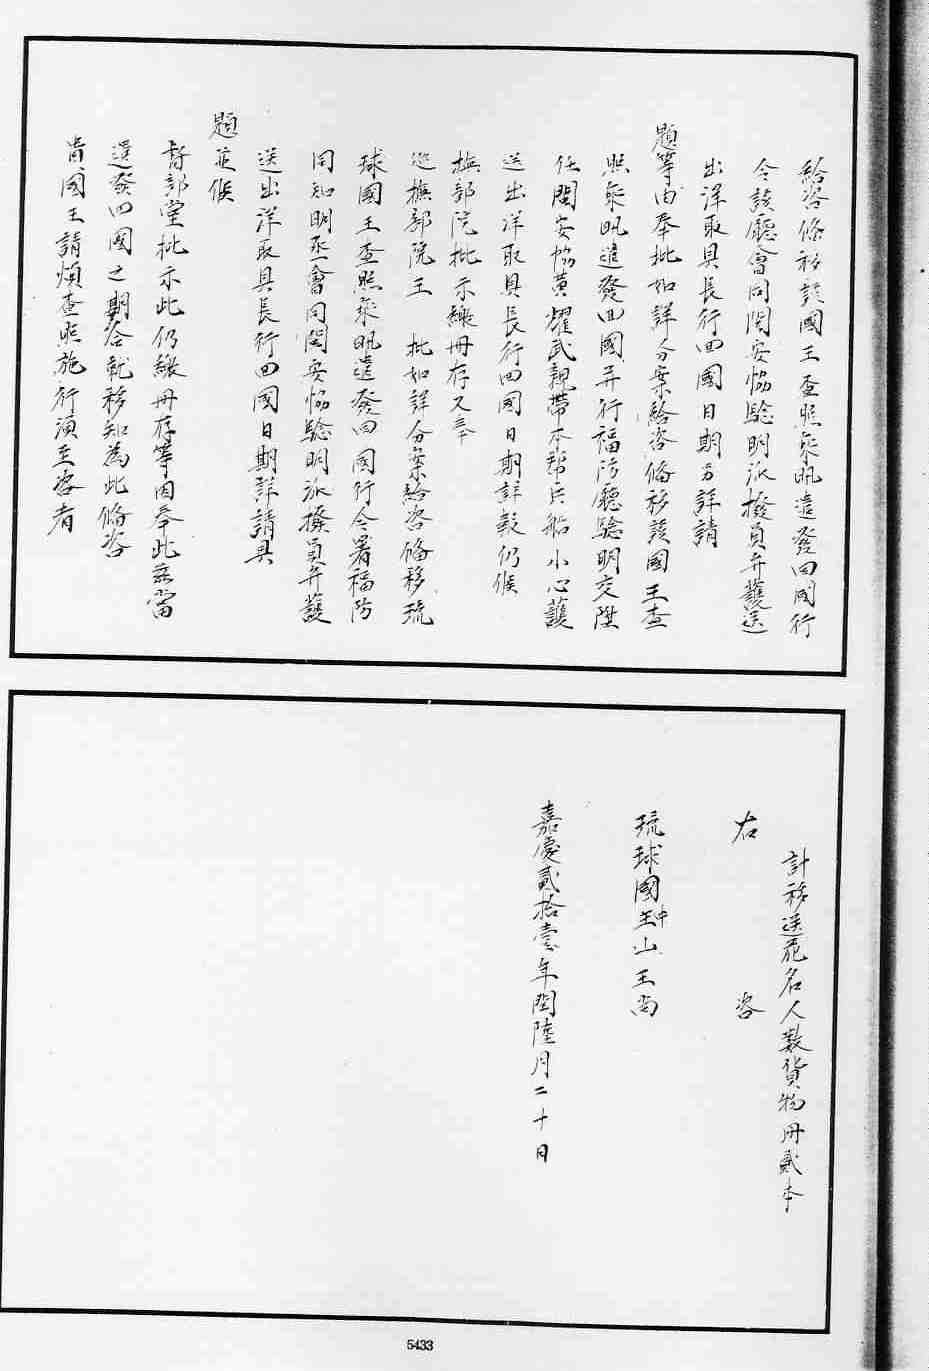 給咨俻移該國王查照乘帆遣發回國行
令該廳會同閩安協驗明派撥員弁護送
出洋取具長行回國日期另詳請
題等由奉批如詳分案給咨俻移該國王查
照乘帆遣發回國并行福防廳驗明交陞
任閩安協黃耀武親帶本幫兵船小心護
送出洋取具長行回國日期詳報仍候
撫部院批示繳冊存又奉
巡撫部院王 批如詳分案給咨俻移琉
球國王查照乘帆遣發回國行令署福防
同知明丞會同閩安協驗明派撥員弁護
送出洋取具長行回國日期詳請具
題並候
督部堂批示此仍繳冊存等因奉此亟當
遣發回國之期合就移知為此俻咨
貴國王請煩查照施行須至咨者
計移送花名人數貨物冊貳本
右 咨
琉球國中山王尚
嘉慶貳拾壹年閏陸月二十日
5433